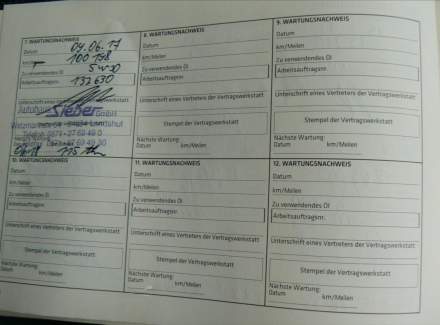 7. WARTUNGSNACHWEIS
Datum 04.06.17
100 198
Zu verwendendes Öl 5W30
Arbeitsauftragsnr. 132630
Unterschrift eines Vertreters der Vertragswerkstatt
Autohaus Sieber GmbH
84034 Landshut
Nächste Wartung:
8. WARTUNGSNACHWEIS
Datum
km/Meilen
Zu verwendendes Öl
Arbeitsauftragsnr.
Unterschrift eines Vertreters der Vertragswerkstatt
Stempel der Vertragswerkstatt
Nächste Wartung:
Datum km/Meilen
9. WARTUNGSNACHWEIS
Datum
km/Meilen
Zu verwendendes Öl
Arbeitsauftragsnr.
Unterschrift eines Vertreters der Vertragswerkstatt
Stempel der Vertragswerkstatt
Nächste Wartung:
Datum km/Meilen
10. WARTUNGSNACHWEIS
Datum
km/Meilen
Zu verwendendes Öl
Arbeitsauftragsnr.
Unterschrift eines Vertreters der Vertragswerkstatt
Stempel der Vertragswerkstatt
Nächste Wartung:
Datum km/Meilen
11. WARTUNGSNACHWEIS
Datum
km/Meilen
Zu verwendendes Öl
Arbeitsauftragsnr.
Unterschrift eines Vertreters der Vertragswerkstatt
Stempel der Vertragswerkstatt
Nächste Wartung:
Datum km/Meilen
12. WARTUNGSNACHWEIS
Datum
km/Meilen
Zu verwendendes Öl
Arbeitsauftragsnr.
Unterschrift eines Vertreters der Vertragswerkstatt
Stempel der Vertragswerkstatt
Nächste Wartung:
Datum km/Meilen